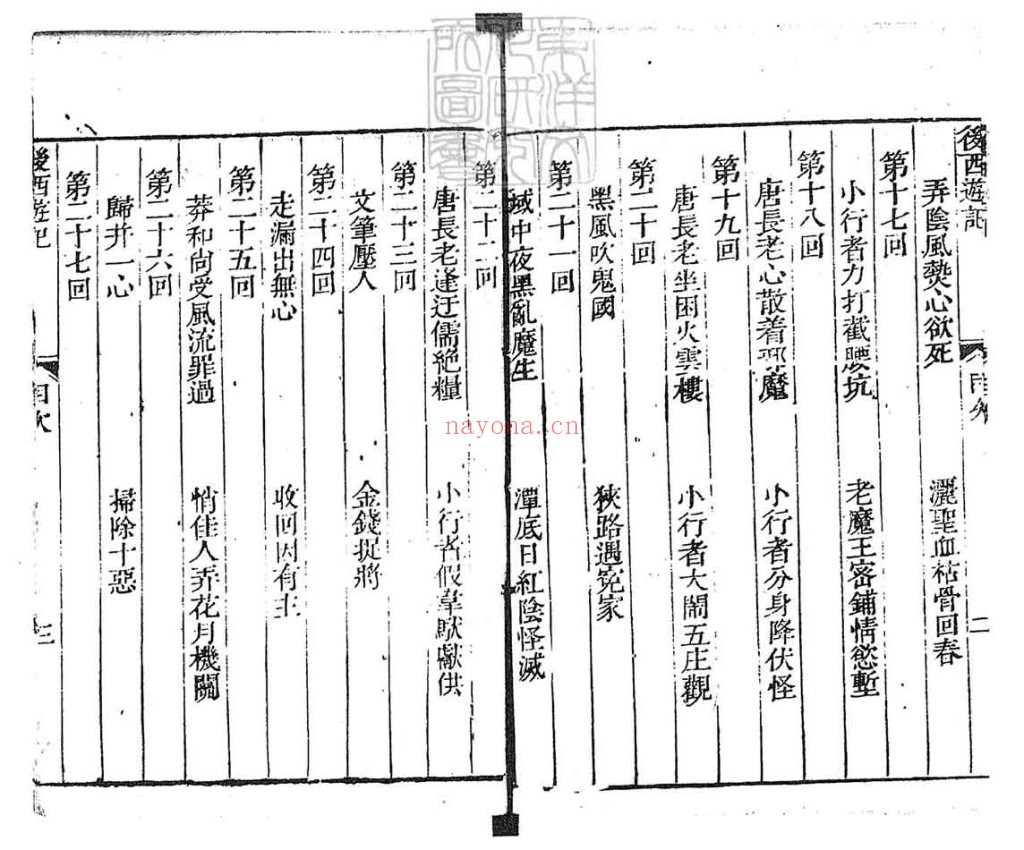 後西遊記
弄陰風熒心欲死 灑聖血枯骨回春
第十七回
小行者力打截腰坑 老魔王密鋪情慾塹
第十八回
唐長老心散着邪魔 小行者分身降伏怪
第十九回
唐長老坐困火雲樓 小行者大鬧五庄觀
第二十回
黑風吹鬼國 狹路遇冤家
第二十一回
域中夜黑亂魔生 潭底日紅陰怪滅
第二十二回
唐長老逢迂儒絶糧 小行者假韋馱獻供
第二十三回
文筆壓人 金錢捉將
第二十四回
走漏出無心 收回因有主
第二十五回
莽和尚受風流罪過 俏佳人弄花月機關
第二十六回
歸并一心 掃除十惡
第二十七回
後西遊記
目次
三
nayona.cn